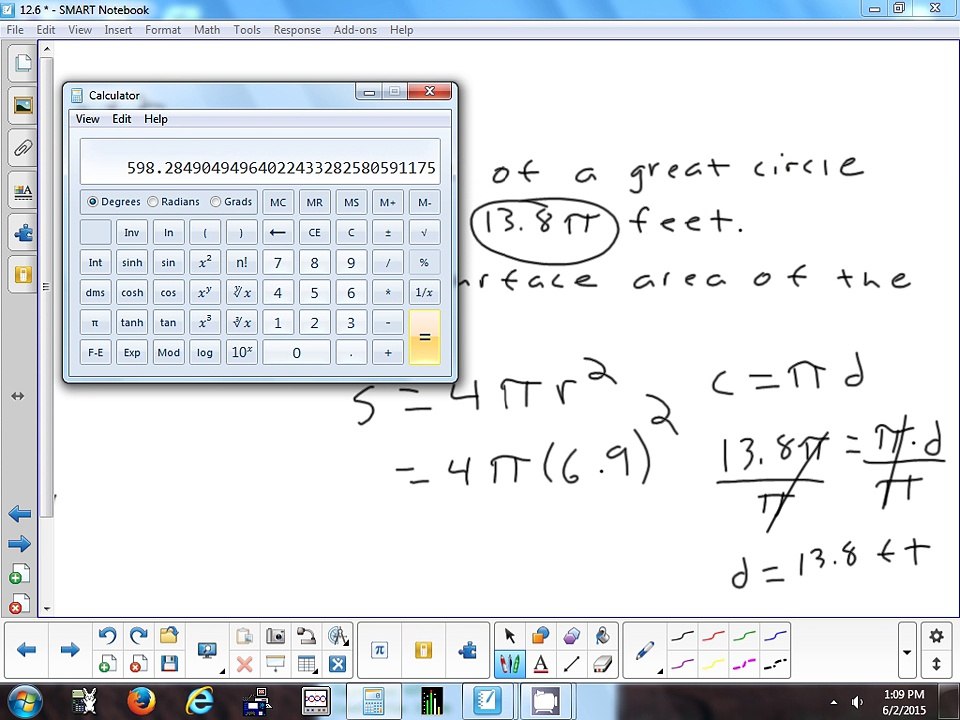 12.6 * - SMART Notebook
File Edit View Insert Format Math Tools Response Add-ons Help
Calculator
View Edit Help
598.28490494964022433282580591175
Degrees Radians Grads MC MR MS M+ M-
Inv ln ( ) ← CE C ± √
Int sinh sin x² n! 7 8 9 / %
dms cosh cos xʸ ʸ√x 4 5 6 * 1/x
π tanh tan x³ ³√x 1 2 3 - =
F-E Exp Mod log 10ˣ 0 . +
of a great circle
13.8π feet.
rface area of the
S = 4πr²
= 4π(6.9)²
C = πd
13.8π/π = π·d/π
d = 13.8 ft
1:09 PM
6/2/2015